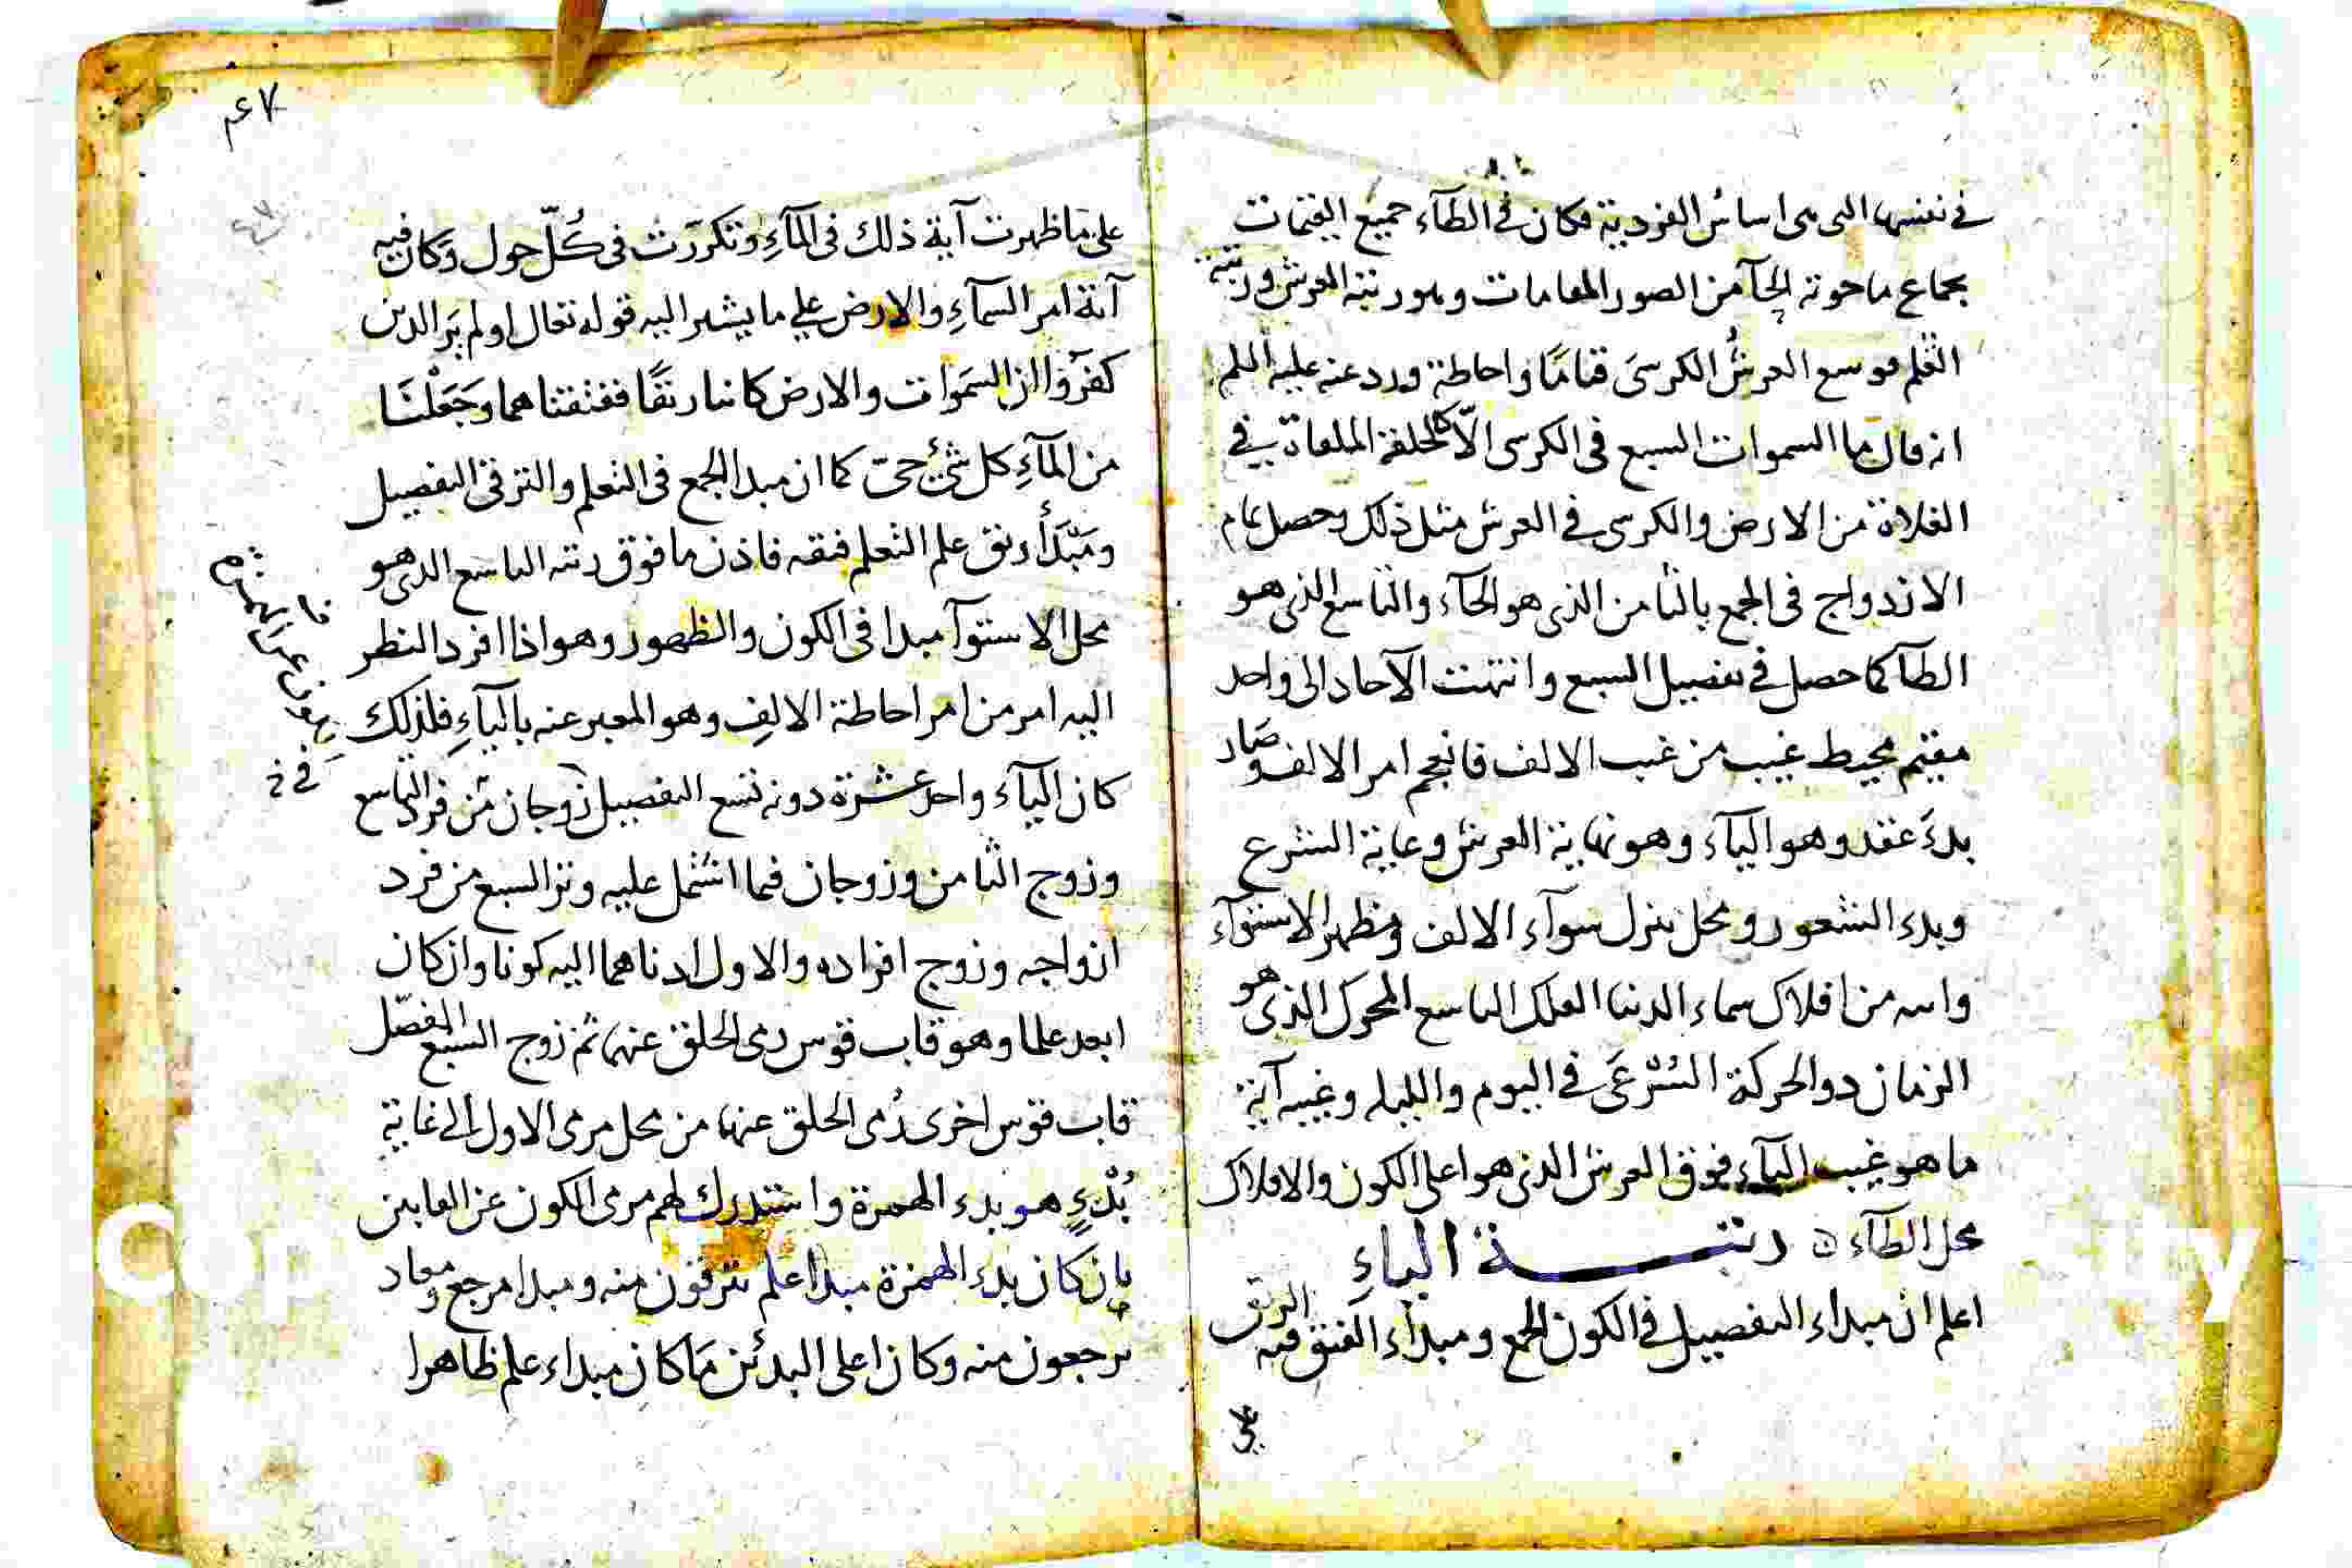 في نفسها التى هى اساس الفردية فكان في الطآء جميع القيمات
بجماع ما حوته الحآ من الصور المقامات وهو رتبة العرش ورتبة
القلم فوسع العرش الكرسى قياما واحاطة ورد عنه عليه السلم
انه قال ما السموات السبع فى الكرسى الا كالحلقة الملقاة في
الفلاة من الارض والكرسى في العرش مثل ذلك وحصل تمام
الازدواج فى الجمع بالثامن الذى هو الحآء والتاسع الذى هو
الطآ كما حصل في تفصيل السبع وانتهت الآحاد الى واحد
مقيم محيط غيب من غيب الالف فانعجم امر الالف وصار
بدء عقد وهو اليآء وهو نهاية العرش وغاية الشرع
وبدء الشعور ومحل تنزل سوآء الالف ومظهر الاستوآء
وايته من افلاك سماء الدنيا الفلك التاسع المحرك الذى هو
الزمان ذو الحركة السرعى في اليوم والليله وغيبه آية
ما هو غيب اليآء فوق العرش الذى هو اعلى الكون والافلاك
محل الطآء ن رتبـــة الياءِ
اعلم ان مبداء التفصيل في الكون الجمع ومبداء الفتق فيه الرتق
على
٤٧
على ما ظهرت آية ذلك فى المآءِ وتكرّرت فى كُلّ حول وكان فيه
آية امر السمآءِ والارض على ما يشير اليه قوله تعالى اولم يَرَ الذين
كفرُوا ان السمَوات والارض كانتا رتقًا ففتقناهما وجَعَلْنَا
من المآءِ كل شئ حىّ كما ان مبدا الجمع فى التعلم والترقى التفصيل
ومَبْدَأُ رتق علم التعلم فتقه فاذن ما فوق رتبه التاسع الذى هو
محل الاستوآ مبدا فى الكون والظهور وهو اذا افرد النظر
اليه امر من امر احاطة الالف وهو المعبر عنه باليآءِ فلذلك
كان اليآء واحد عشرة دونه تسع التفصيل زوجان من فرد التاسع
وزوج الثامن وزوجان فيما اشتمل عليه وتر السبع من فرد
ازواجه وزوج افراده والاول ادناهما اليه كونا وان كان
ابعد علما وهو قاب قوس رمى الخلق عنها ثم زوج السبع المفصّل
قاب قوس اخرى رُمى الخلق عنها من محل مرمى الاول الى غاية
بُدْءٍ هو بدء الهمزة واستدرك لهم مرمى الكون عن الغايتين
بان كان بدء الهمزة مبدا علم يترقون منه ومبدا مرجع ومعاد
يرجعون منه وكان اعلى البدئين ما كان مبداء علم ظاهرا